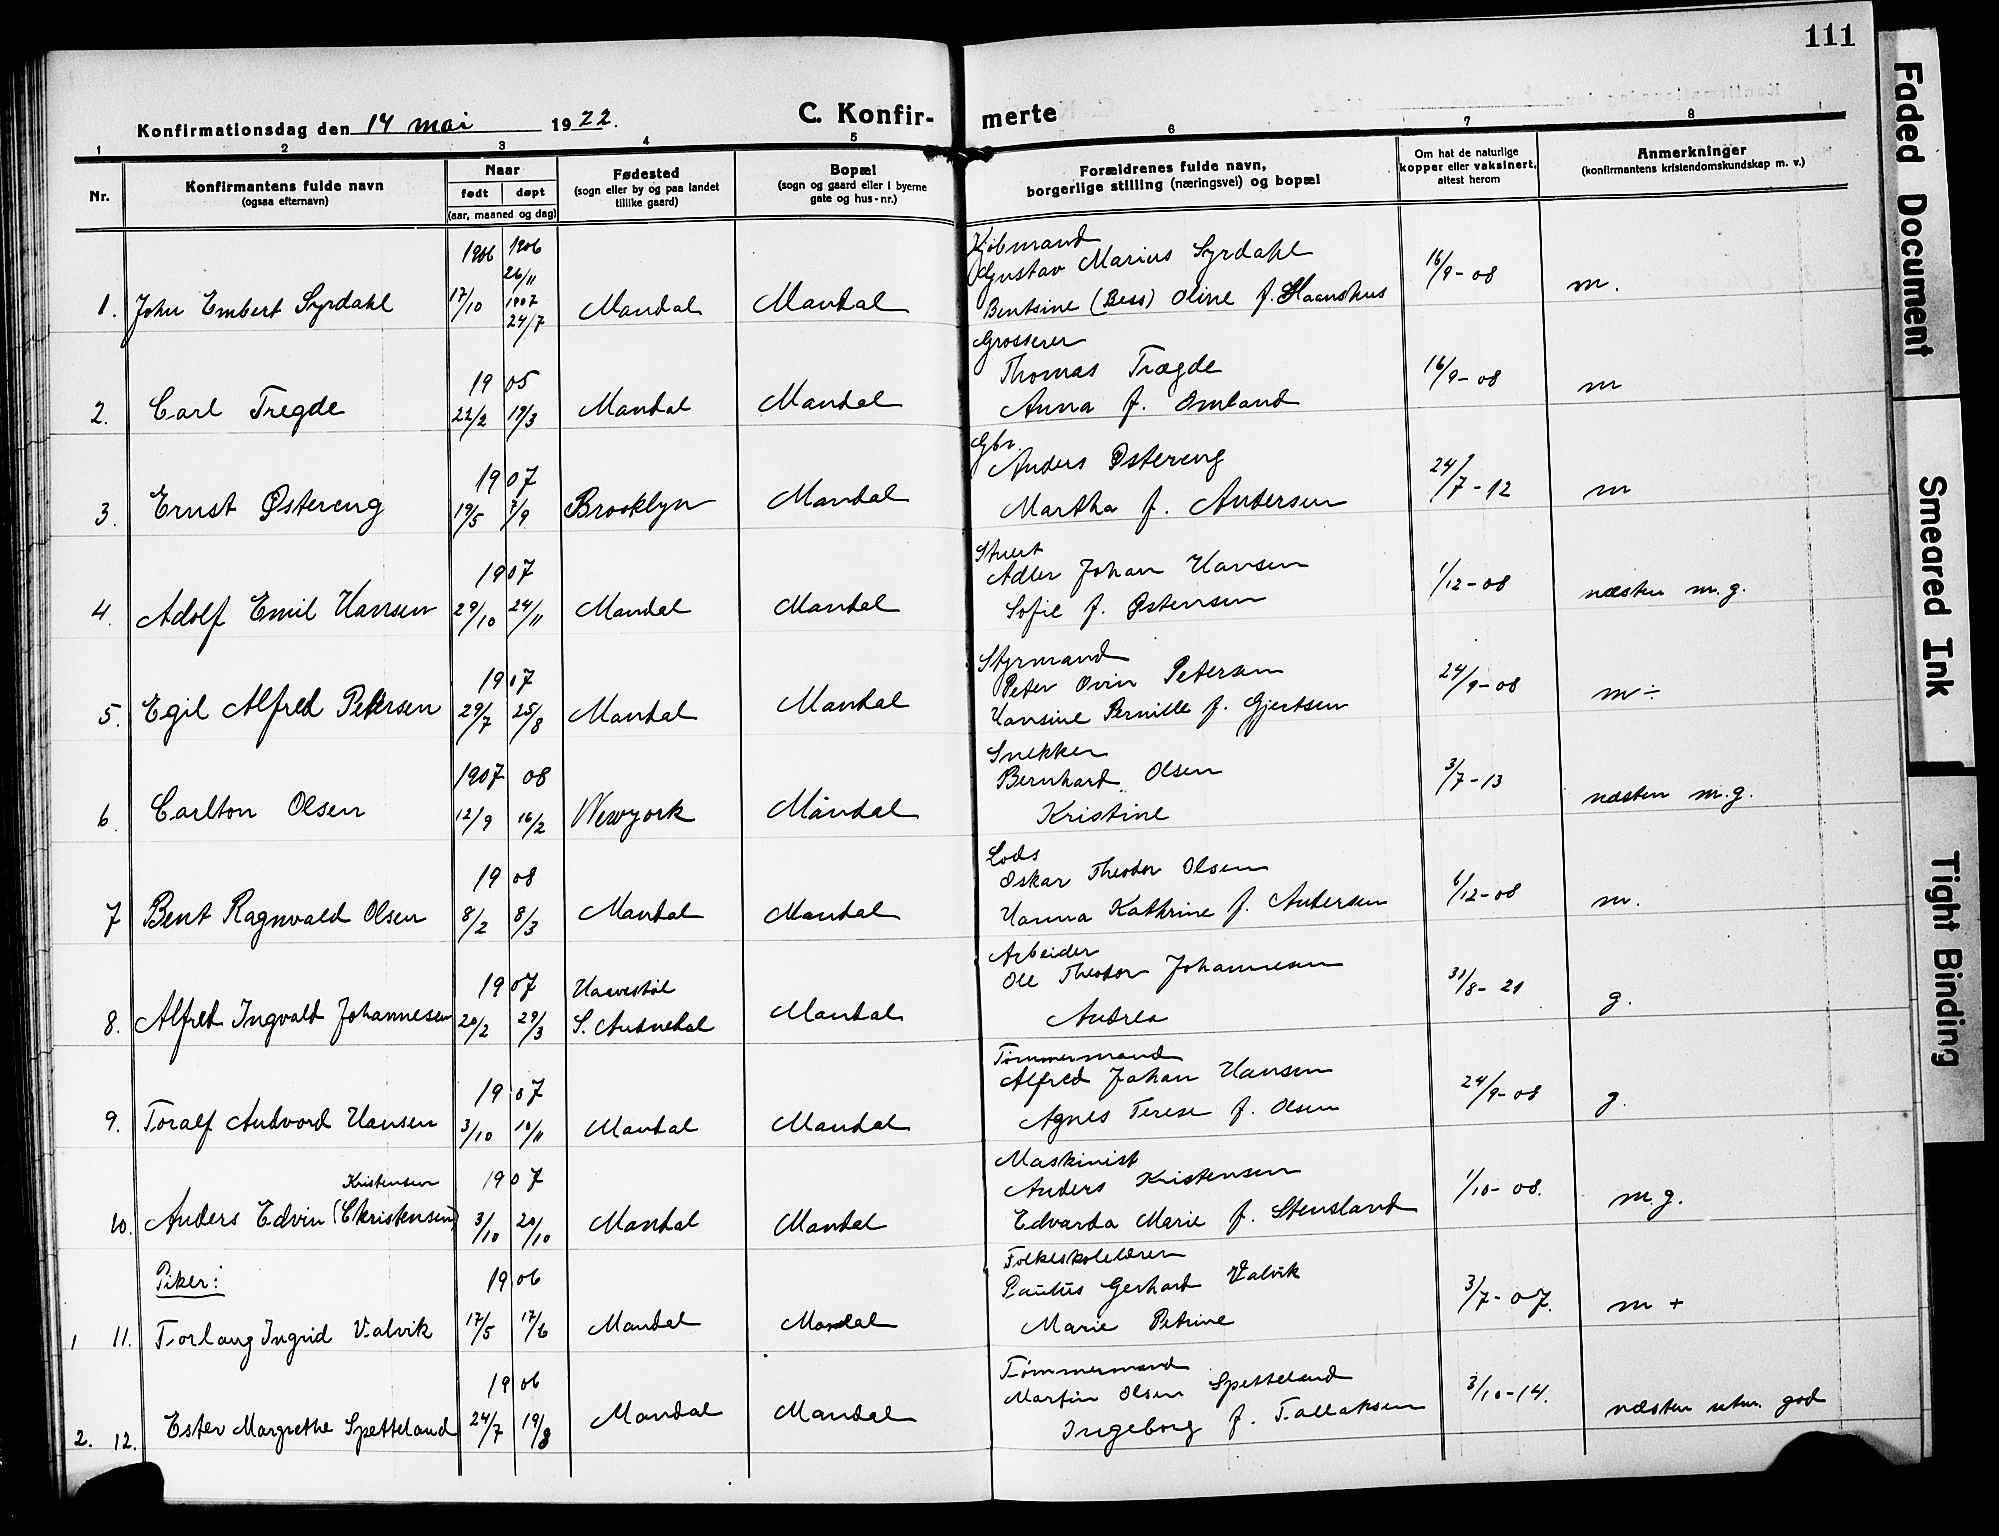 111
Konfirmationsdag den 14 mai 1922.
C. Konfir- merte
1 2 3 4 5 6 7 8
Nr.
Konfirmantens fulde navn
(ogsaa efternavn)
Naar
født døpt
(aar, maaned og dag)
Fødested
(sogn eller by og paa landet
tillike gaard)
Bopæl
(sogn og gaard eller i byerne
gate og hus-nr.)
Forældrenes fulde navn,
borgerlige stilling (næringsvei) og bopæl
Om hat de naturlige
kopper eller vaksinert,
attest herom
Anmerkninger
(konfirmantens kristendomskundskap m. v.)
1906 1906 Kjøbmand
26/11 Gustav Marius Syrdahl 16/9-08
1. John Embert Syrdahl 17/10 1907 24/7 Mandal Mandal Bentsine (Bess) Oline f. Haanshus m.
Grosserer
19 05 Thomas Trægde 16/9-08
2. Carl Tregde 22/2 19/3 Mandal Mandal Anna f. Omland m
Gbr.
19 07 Anders Østereng 24/7-12
3. Ernst Østereng 19/5 7/9 Brooklyn Mandal Martha f. Andersen m
Stuert
1907 Adler Johan Hansen 1/12-08
4. Adolf Emil Hansen 29/10 24/11 Mandal Mandal Sofie f. Østensen næsten m.g.
Styrmand
1907 Peter Ovin Petersen 24/9-08
5. Egil Alfred Petersen 29/7 25/8 Mandal Mandal Hansine Pernille f. Gjertsen m÷
Snekker
1907 08 Bernhard Olsen 3/7-13
6. Carlton Olsen 12/9 16/2 Newyork Mandal Kristine næsten m.g.
Lods
19 08 Oskar Theodor Olsen 6/12-08
7 Bent Ragnvald Olsen 8/2 8/3 Mandal Mandal Hanna Kathrine f. Andersen m.
Arbeider
19 07 Haavestøl Ole Theodor Johannesen 31/8-21
8. Alfred Ingvald Johannesen 20/2 29/3 S. Audnedal Mandal Andrea g.
Tømmermand
19 07 Alfred Johan Hansen 24/9-08
9. Toralf Andvord Hansen 3/10 10/11 Mandal Mandal Agnes Terese f. Olsen g.
Maskinist
Kristensen 1907 Anders Kristensen 1/10-08.
10. Anders Edvin (Christensen) 3/10 20/10 Mandal Mandal Edvarda Marie f. Stensland m.g.
Folkeskolelærer
Piker: 1906 Paulus Gerhard Valvik 3/7-07.
1 11. Torlaug Ingrid Valvik 17/5 17/6 Mandal Mandal Marie Petrine m +
Tømmermand
1906 Martin Olsen Spetteland 3/10-14.
2. 12. Ester Margrethe Spetteland 24/7 19/8 Mandal Mandal Ingeborg f. Tallaksen næsten utm. god
Faded Document
Smeared Ink
Tight Binding